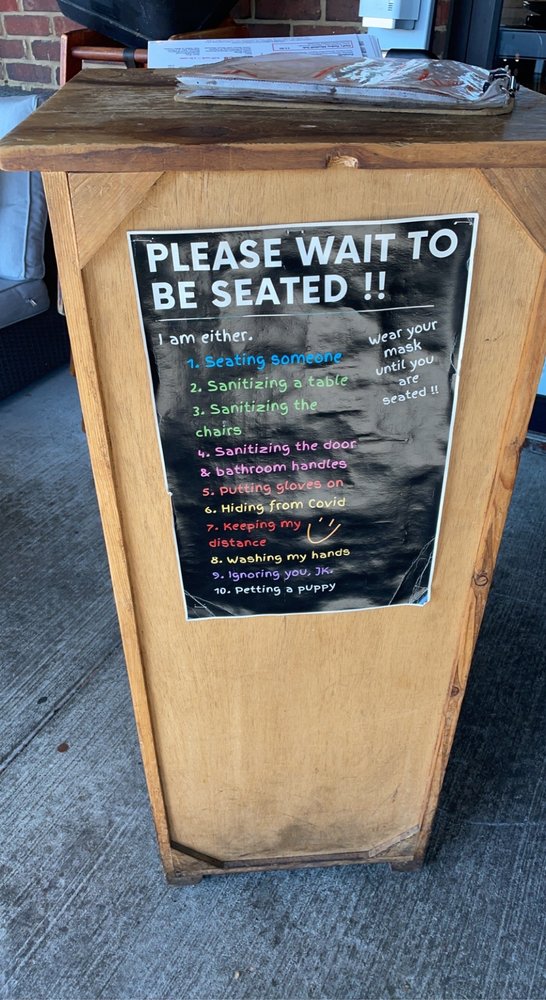 PLEASE WAIT TO
BE SEATED !!
I am either.
wear your
mask
until you
are
seated !!
1. Seating someone
2. Sanitizing a table
3. Sanitizing the
chairs
4. Sanitizing the door
& bathroom handles
5. Putting gloves on
6. Hiding from Covid
7. Keeping my
distance
8. Washing my hands
9. Ignoring you, JK.
10. Petting a puppy